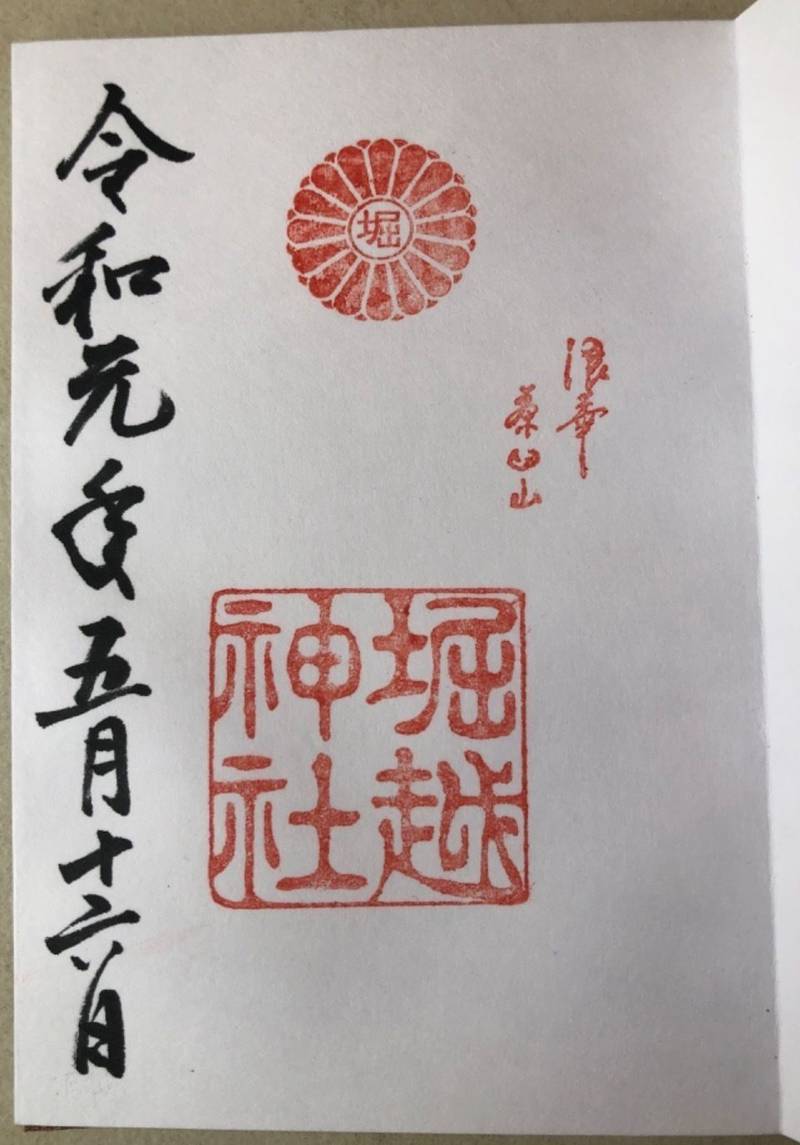 浪華
茶臼山
堀
堀越
神社
令和元年五月十六日